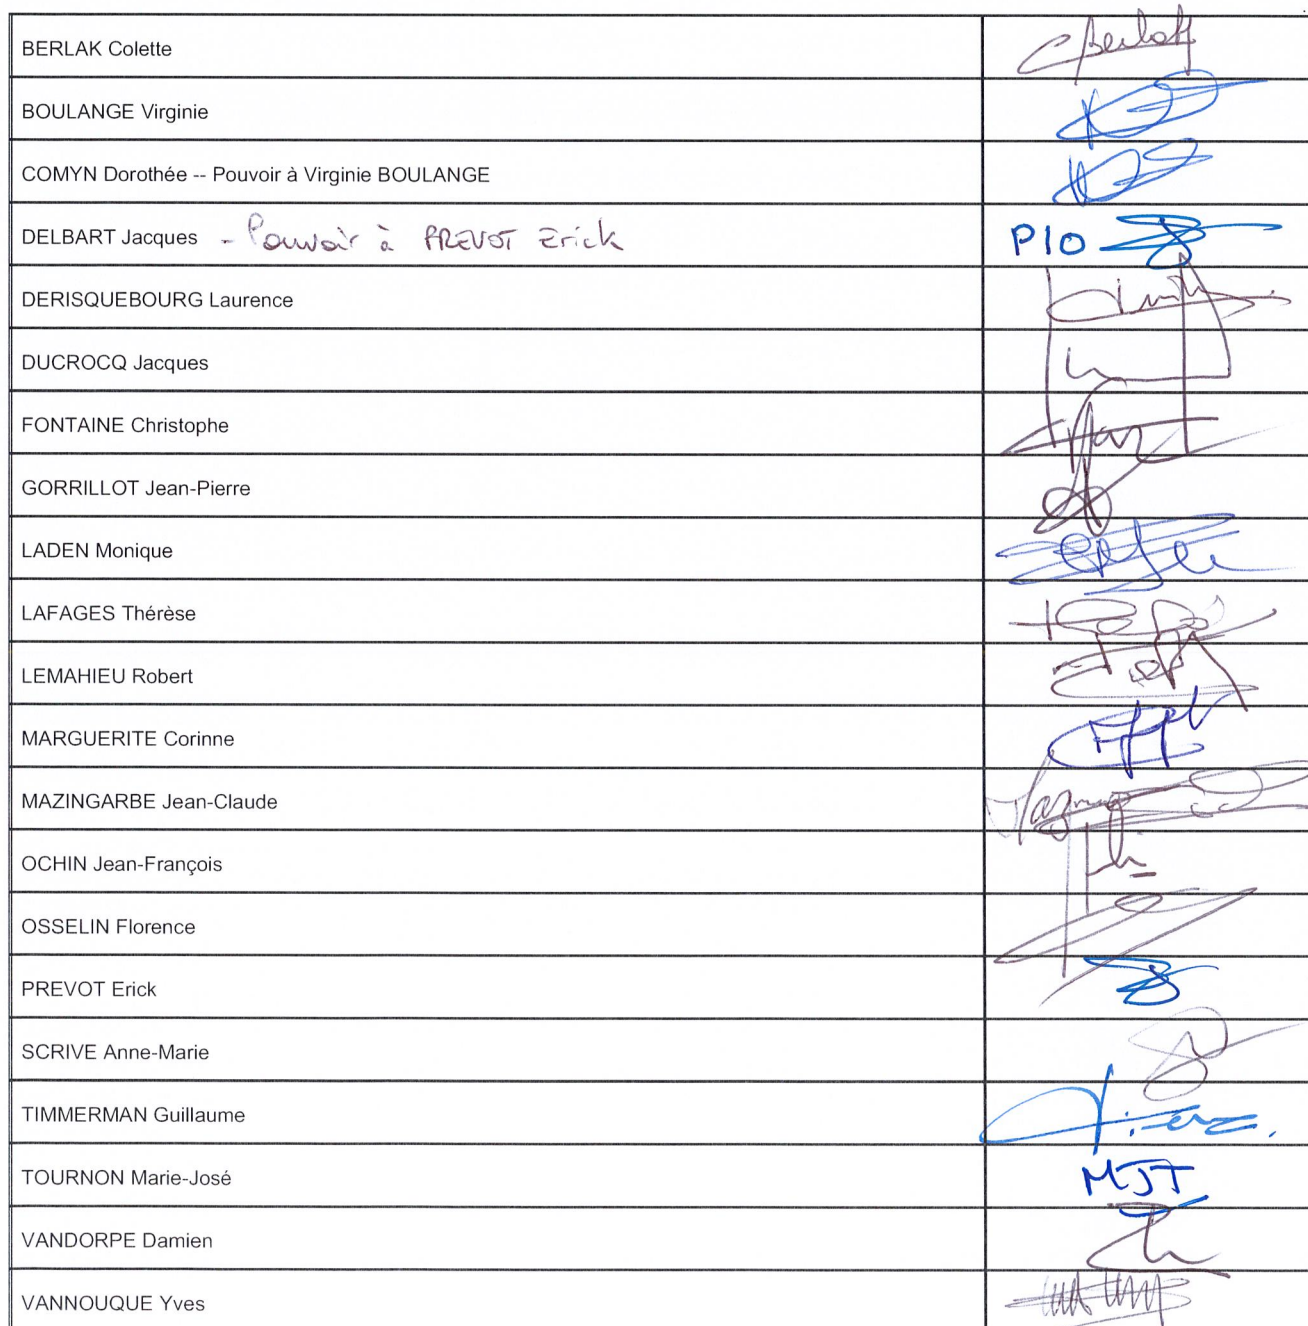 BERLAK Colette CBerlak
BOULANGE Virginie
COMYN Dorothée -- Pouvoir à Virginie BOULANGE
DELBART Jacques - Pouvoir à PREVOT Erick P/O
DERISQUEBOURG Laurence
DUCROCQ Jacques
FONTAINE Christophe
GORRILLOT Jean-Pierre
LADEN Monique
LAFAGES Thérèse
LEMAHIEU Robert
MARGUERITE Corinne
MAZINGARBE Jean-Claude
OCHIN Jean-François
OSSELIN Florence
PREVOT Erick
SCRIVE Anne-Marie
TIMMERMAN Guillaume
TOURNON Marie-José MJT
VANDORPE Damien
VANNOUQUE Yves